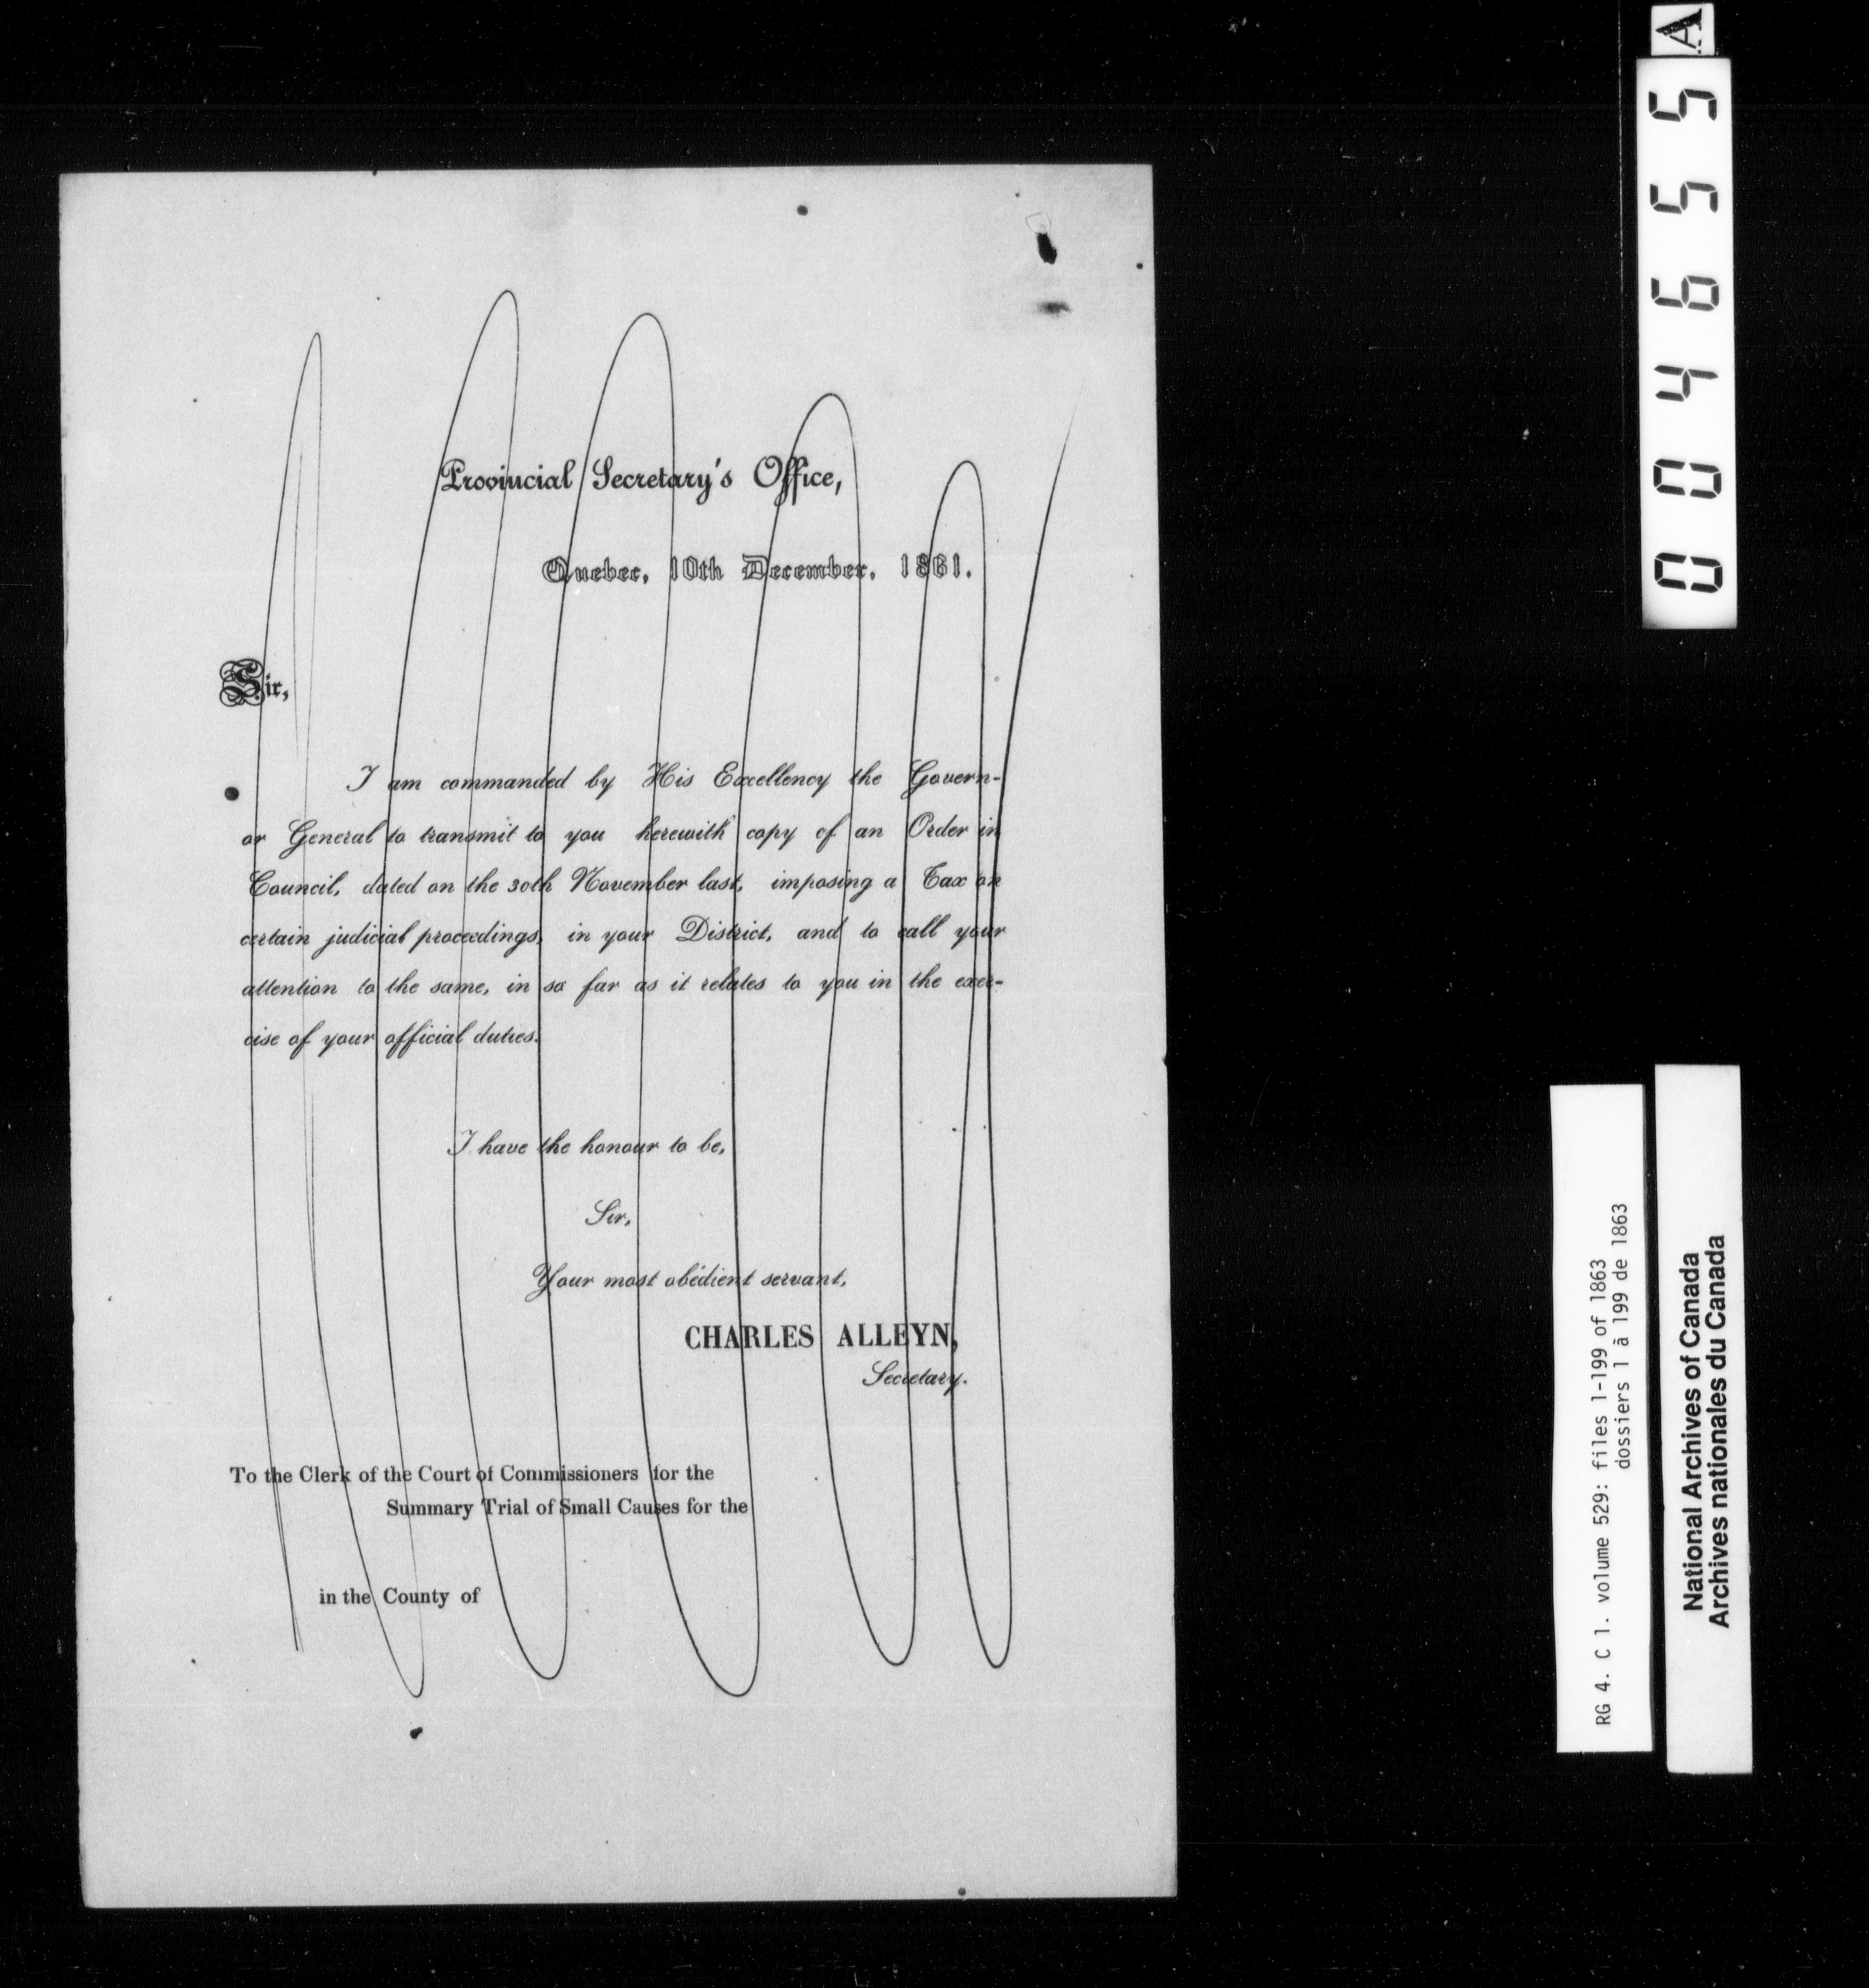 Provincial Secretary's Office,
Quebec, 10th December, 1861.
Sir,
I am commanded by His Excellency the Govern-
or General to transmit to you herewith copy of an Order in
Council, dated on the 30th November last, imposing a Tax on
certain judicial proceedings, in your District, and to call your
attention to the same, in so far as it relates to you in the exer-
cise of your official duties.
I have the honour to be,
Sir,
Your most obedient servant,
CHARLES ALLEYN,
Secretary.
To the Clerk of the Court of Commissioners for the
Summary Trial of Small Causes for the
in the County of
004655 A
RG 4. C 1. volume 529: files 1-199 of 1863
dossiers 1 à 199 de 1863
National Archives of Canada
Archives nationales du Canada